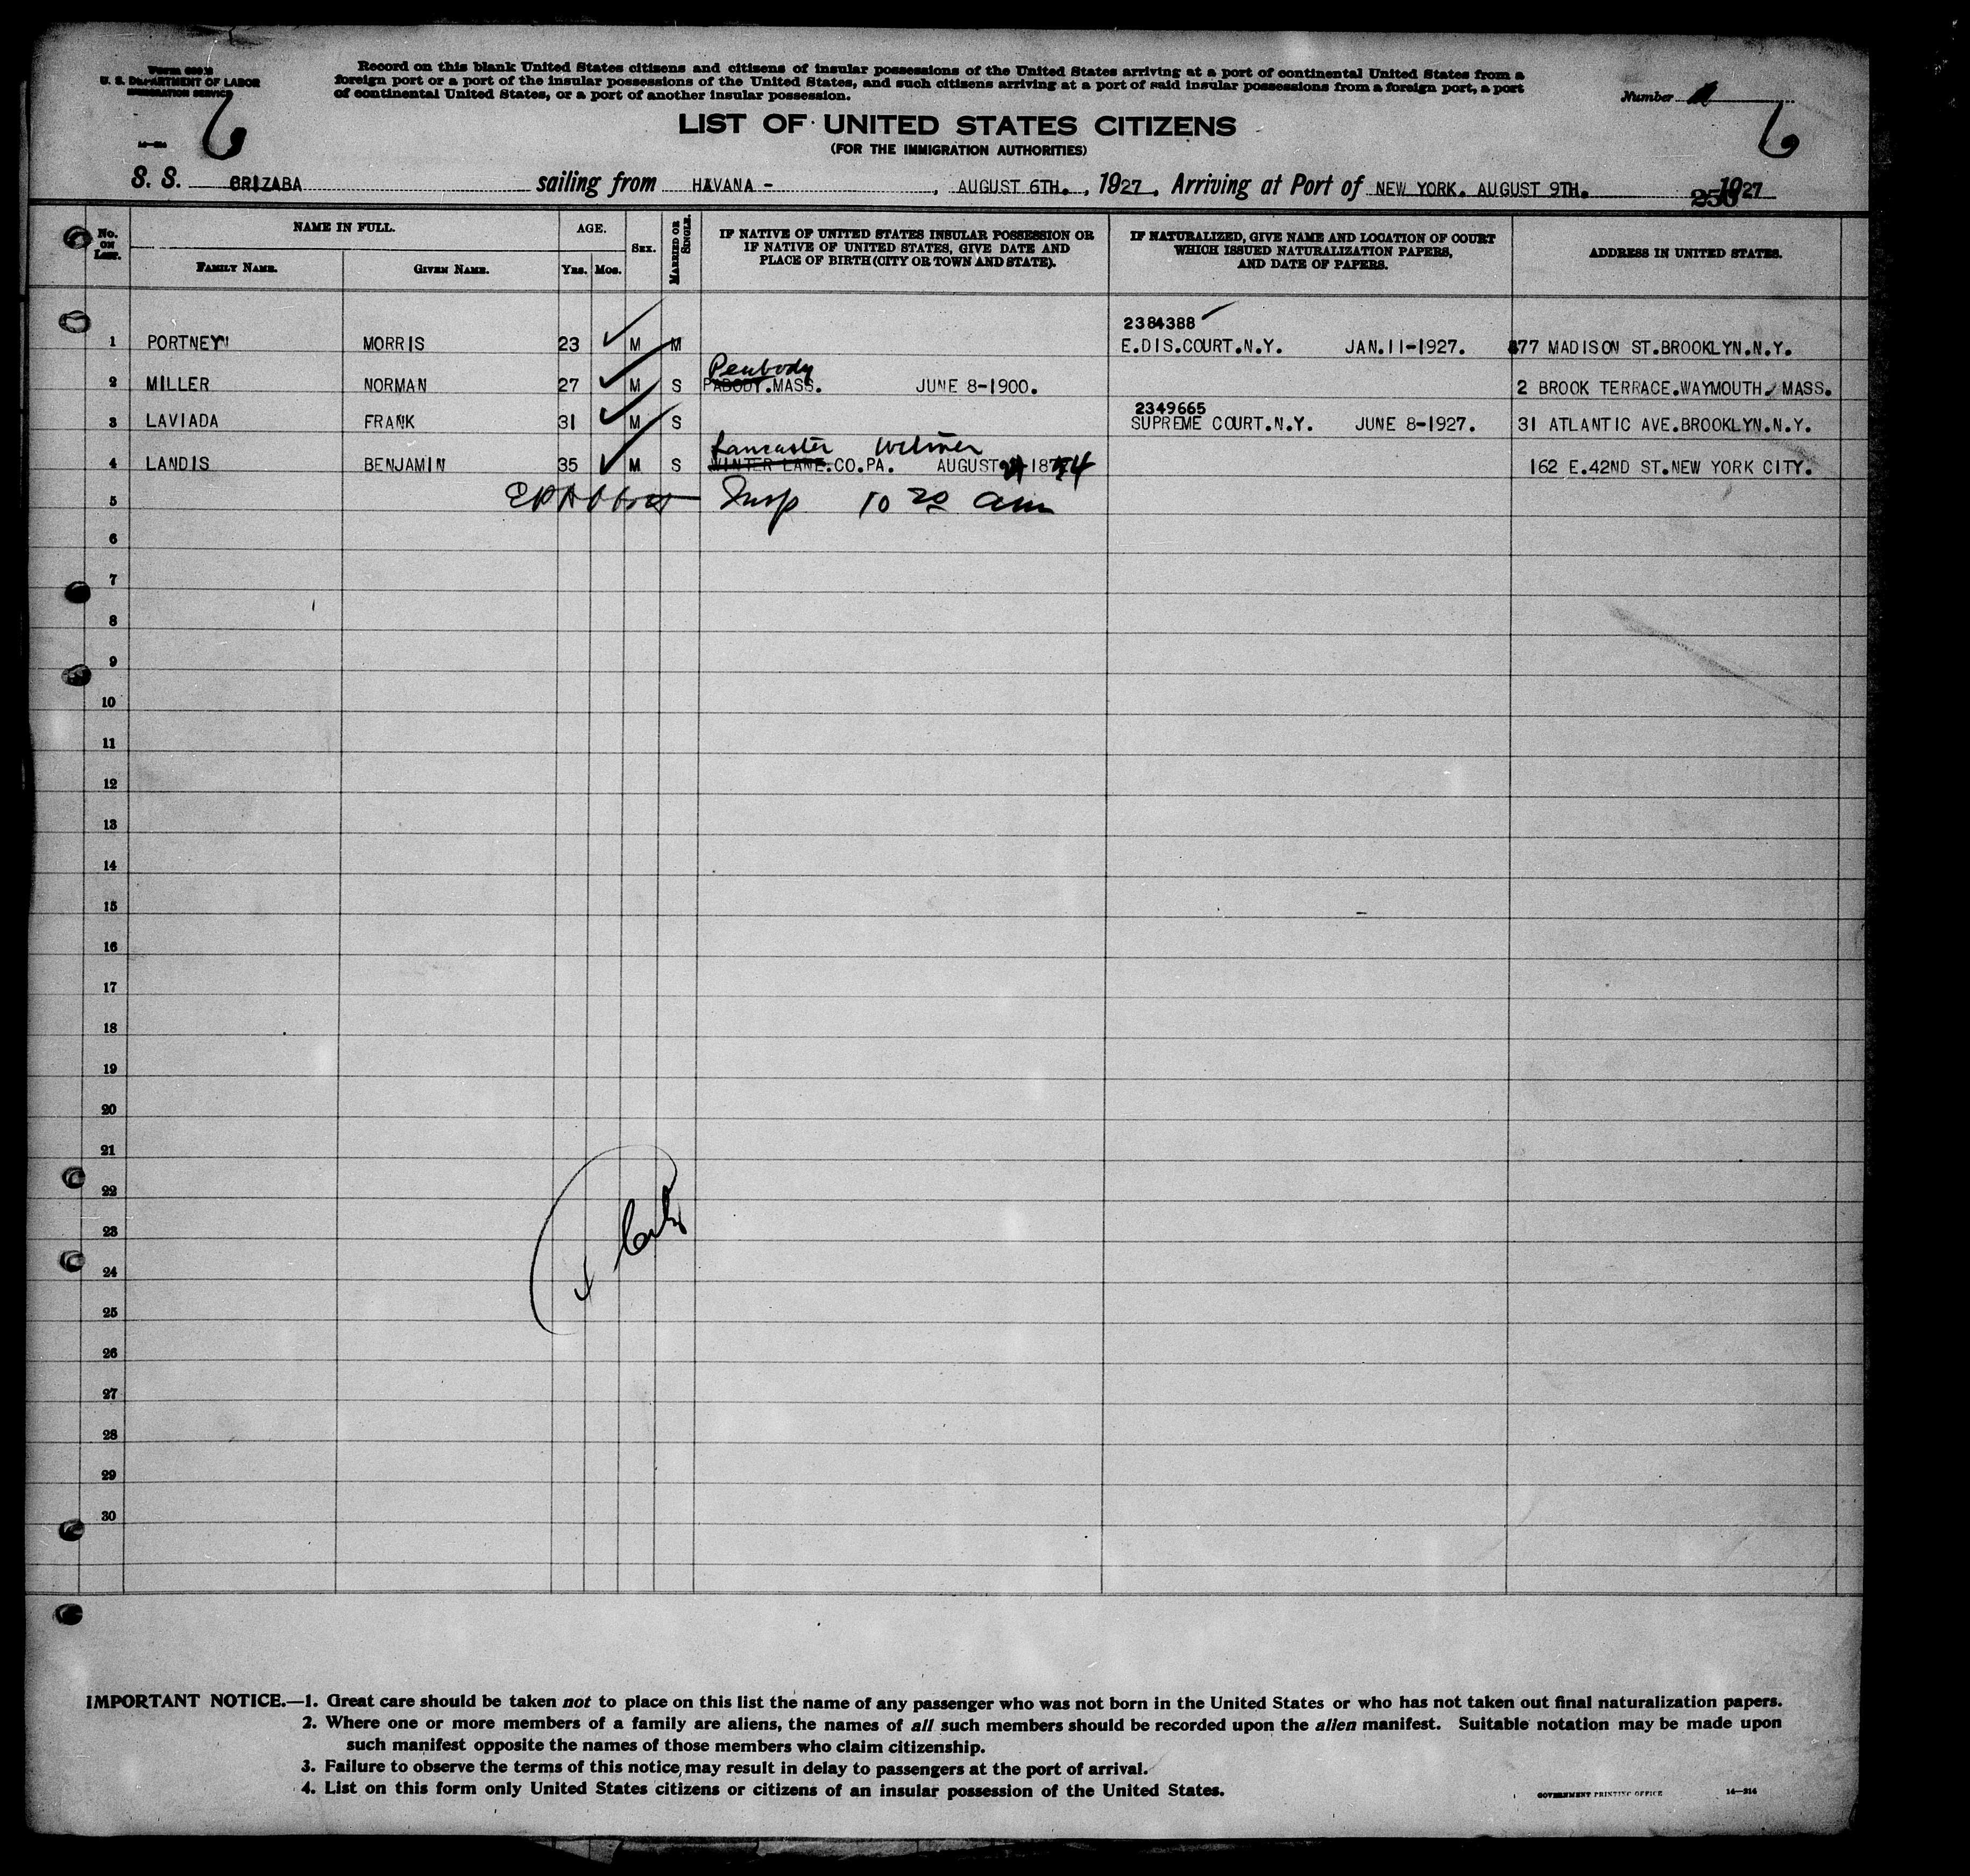 U. S. DEPARTMENT OF LABOR
IMMIGRATION SERVICE
Record on this blank United States citizens and citizens of insular possessions of the United States arriving at a port of continental United States from a
foreign port or a port of the insular possessions of the United States, and such citizens arriving at a port of said insular possessions from a foreign port, a port
of continental United States, or a port of another insular possession.
Number
6
6
LIST OF UNITED STATES CITIZENS
(FOR THE IMMIGRATION AUTHORITIES)
S. S. ORIZABA sailing from HAVANA - , AUGUST 6TH. , 1927 , Arriving at Port of NEW YORK. AUGUST 9TH. 1927
No. ON LIST.
NAME IN FULL.
FAMILY NAME.
GIVEN NAME.
AGE.
YRS. MOS.
SEX.
MARRIED OR SINGLE.
IF NATIVE OF UNITED STATES INSULAR POSSESSION OR
IF NATIVE OF UNITED STATES, GIVE DATE AND
PLACE OF BIRTH (CITY OR TOWN AND STATE).
IF NATURALIZED, GIVE NAME AND LOCATION OF COURT
WHICH ISSUED NATURALIZATION PAPERS,
AND DATE OF PAPERS.
ADDRESS IN UNITED STATES.
2384388
1 PORTNEY MORRIS 23 M M E.DIS.COURT.N.Y. JAN.11-1927. 877 MADISON ST.BROOKLYN.N.Y.
Peabody
2 MILLER NORMAN 27 M S PABODY.MASS. JUNE 8-1900. 2 BROOK TERRACE.WAYMOUTH. MASS.
2349665
3 LAVIADA FRANK 31 M S SUPREME COURT.N.Y. JUNE 8-1927. 31 ATLANTIC AVE.BROOKLYN.N.Y.
Lancaster
4 LANDIS BENJAMIN 35 M S WINTER LANE.CO.PA. AUGUST 162 E.42ND ST.NEW YORK CITY.
5 Insp 10 20 am
6
7
8
9
10
11
12
13
14
15
16
17
18
19
20
21
22
23
24
25
26
27
28
29
30
IMPORTANT NOTICE.—1. Great care should be taken not to place on this list the name of any passenger who was not born in the United States or who has not taken out final naturalization papers.
2. Where one or more members of a family are aliens, the names of all such members should be recorded upon the alien manifest. Suitable notation may be made upon
such manifest opposite the names of those members who claim citizenship.
3. Failure to observe the terms of this notice may result in delay to passengers at the port of arrival.
4. List on this form only United States citizens or citizens of an insular possession of the United States.
GOVERNMENT PRINTING OFFICE 14—214